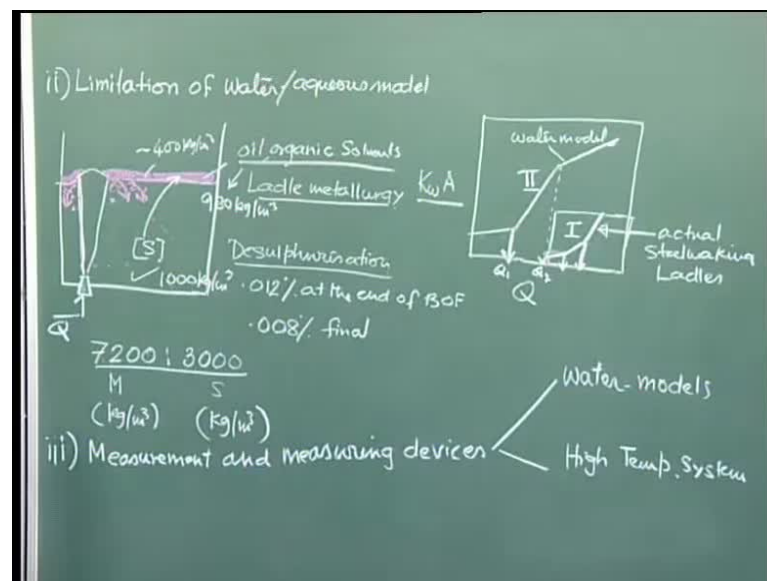 ii) Limitation of water/aqueous model
~400kg/m³
oil, organic Solvents
930kg/m³
Ladle metallurgy
KwA
[S]
1000kg/m³
Desulphurisation
.012% at the end of BOF
.008% final
Q
7200 : 3000
M S
(kg/m³) (kg/m³)
water model
II
I
actual
Steelmaking
Ladles
Q₁ Q₂
Q
iii) Measurement and measuring devices
Water-models
High Temp. System